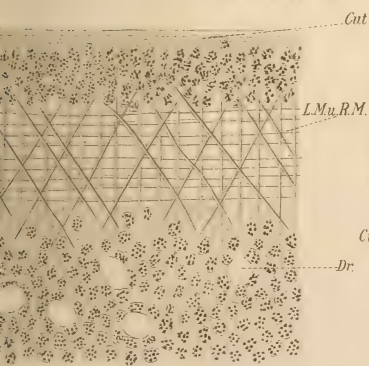 Cut
L.M.u.R.M.
Dr.